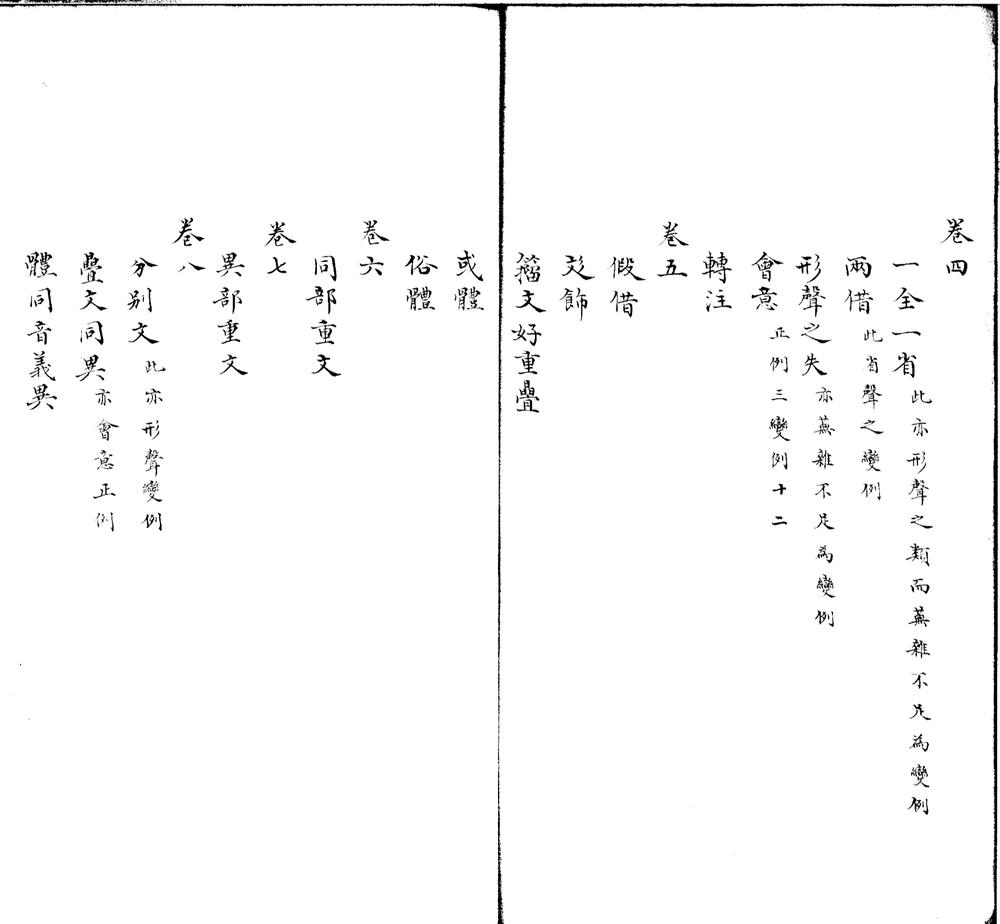 卷四
一全一省此亦形聲之類而蕪雜不足為變例
兩借此省聲之變例
形聲之失亦蕪雜不足為變例
會意正例三變例十二
轉注
卷五
假借
彣飾
籀文好重疊
或體
俗體
卷六
同部重文
卷七
異部重文
卷八
分别文此亦形聲變例
疊文同異亦會意正例
體同音義異